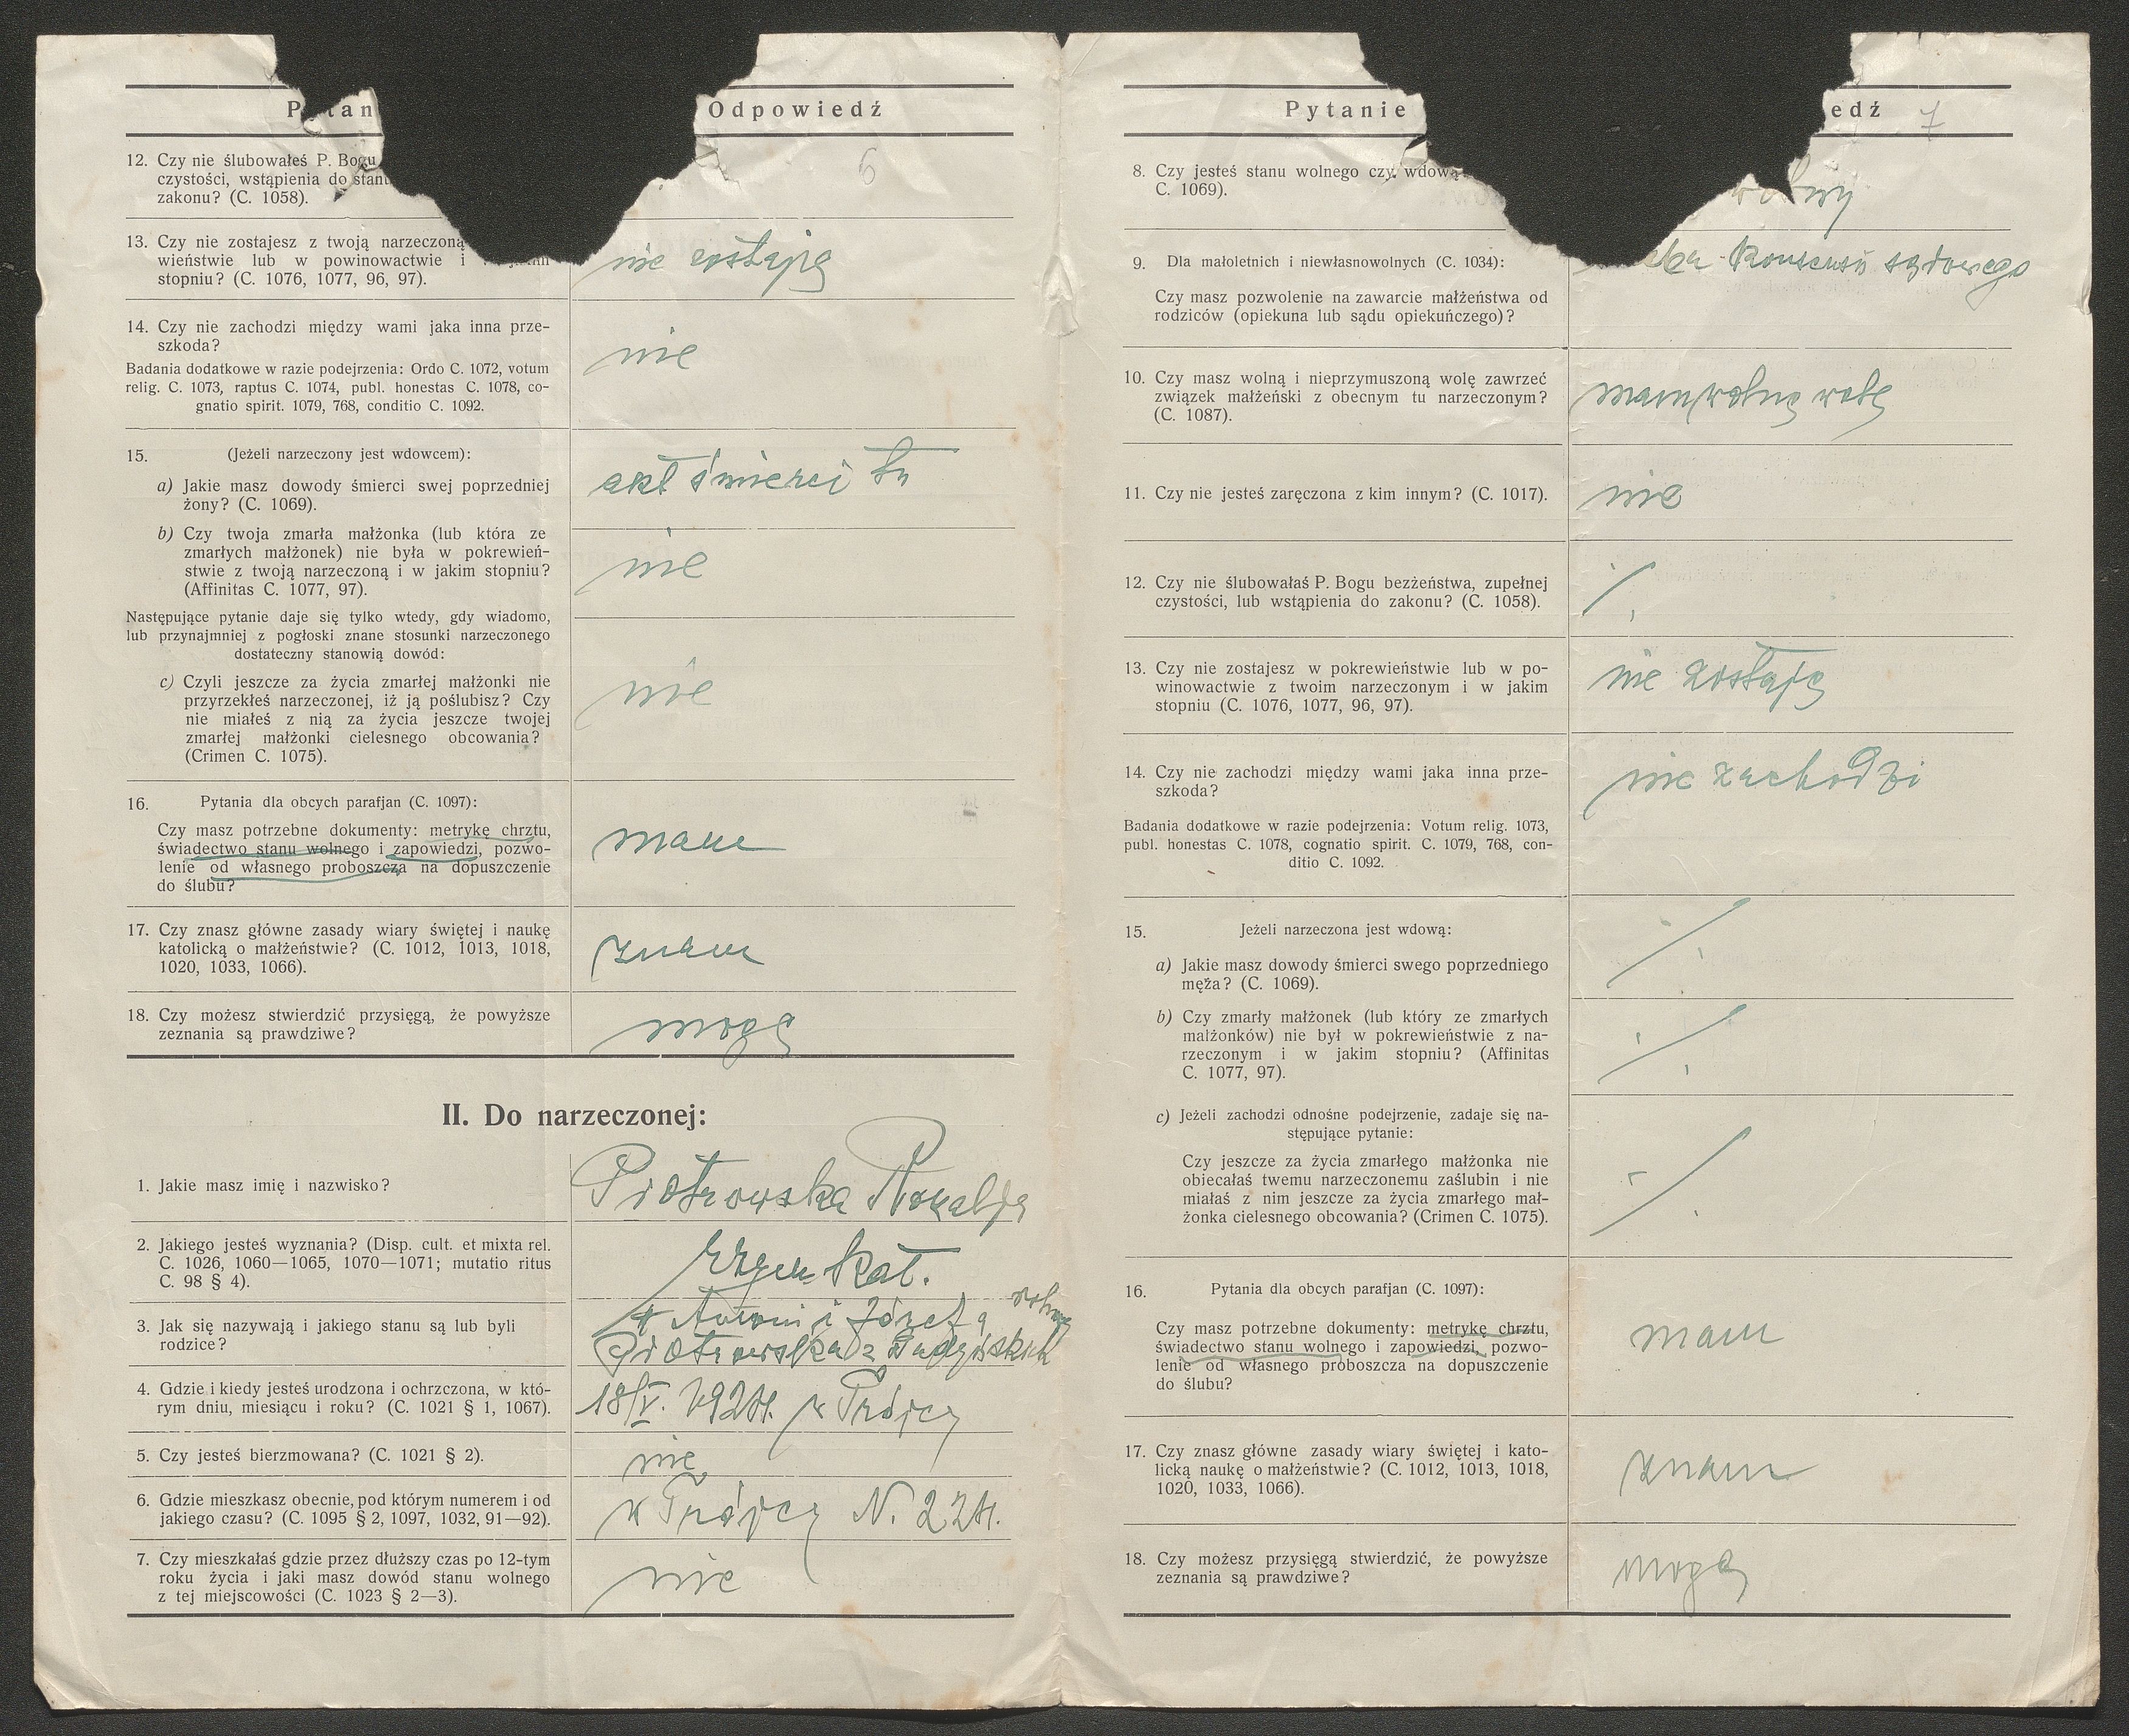 Odpowiedź
6
12. Czy nie ślubowałeś P. Bogu
czystości, wstąpienia do stanu
zakonu? (C. 1058).
13. Czy nie zostajesz z twoją narzeczoną
wieństwie lub w powinowactwie i
stopniu? (C. 1076, 1077, 96, 97).
nie zostaję
14. Czy nie zachodzi między wami jaka inna prze-
szkoda?
nie
Badania dodatkowe w razie podejrzenia: Ordo C. 1072, votum
relig. C. 1073, raptus C. 1074, publ. honestas C. 1078, co-
gnatio spirit. 1079, 768, conditio C. 1092.
15. (Jeżeli narzeczony jest wdowcem):
a) Jakie masz dowody śmierci swej poprzedniej
żony? (C. 1069).
akt śmierci tu
b) Czy twoja zmarła małżonka (lub która ze
zmarłych małżonek) nie była w pokrewień-
stwie z twoją narzeczoną i w jakim stopniu?
(Affinitas C. 1077, 97).
nie
Następujące pytanie daje się tylko wtedy, gdy wiadomo,
lub przynajmniej z pogłoski znane stosunki narzeczonego
dostateczny stanowią dowód:
c) Czyli jeszcze za życia zmarłej małżonki nie
przyrzekłeś narzeczonej, iż ją poślubisz? Czy
nie miałeś z nią za życia jeszcze twojej
zmarłej małżonki cielesnego obcowania?
(Crimen C. 1075).
nie
16. Pytania dla obcych parafjan (C. 1097):
Czy masz potrzebne dokumenty: metrykę chrztu,
świadectwo stanu wolnego i zapowiedzi, pozwo-
lenie od własnego proboszcza na dopuszczenie
do ślubu?
mam
17. Czy znasz główne zasady wiary świętej i naukę
katolicką o małżeństwie? (C. 1012, 1013, 1018,
1020, 1033, 1066).
znam
18. Czy możesz stwierdzić przysięgą, że powyższe
zeznania są prawdziwe?
mogę
II. Do narzeczonej:
1. Jakie masz imię i nazwisko?
Piotrowska Rozalja
2. Jakiego jesteś wyznania? (Disp. cult. et mixta rel.
C. 1026, 1060—1065, 1070—1071; mutatio ritus
C. 98 § 4).
rzym kat.
3. Jak się nazywają i jakiego stanu są lub byli
rodzice?
† Antoni i Józefa
Piotrowska z
4. Gdzie i kiedy jesteś urodzona i ochrzczona, w któ-
rym dniu, miesiącu i roku? (C. 1021 § 1, 1067).
18/V. 1924. w Trójcy
5. Czy jesteś bierzmowana? (C. 1021 § 2).
nie
6. Gdzie mieszkasz obecnie, pod którym numerem i od
jakiego czasu? (C. 1095 § 2, 1097, 1032, 91—92).
w Trójcy N. 224.
7. Czy mieszkałaś gdzie przez dłuższy czas po 12-tym
roku życia i jaki masz dowód stanu wolnego
z tej miejscowości (C. 1023 § 2—3).
nie
Pytanie
7
8. Czy jesteś stanu wolnego czy wdową
C. 1069).
9. Dla małoletnich i niewłasnowolnych (C. 1034):
Czy masz pozwolenie na zawarcie małżeństwa od
rodziców (opiekuna lub sądu opiekuńczego)?
konsensu sądowego
10. Czy masz wolną i nieprzymuszoną wolę zawrzeć
związek małżeński z obecnym tu narzeczonym?
(C. 1087).
mam wolną wolę
11. Czy nie jesteś zaręczona z kim innym? (C. 1017).
nie
12. Czy nie ślubowałaś P. Bogu bezżeństwa, zupełnej
czystości, lub wstąpienia do zakonu? (C. 1058).
13. Czy nie zostajesz w pokrewieństwie lub w po-
winowactwie z twoim narzeczonym i w jakim
stopniu (C. 1076, 1077, 96, 97).
nie zostaję
14. Czy nie zachodzi między wami jaka inna prze-
szkoda?
nie zachodzi
Badania dodatkowe w razie podejrzenia: Votum relig. 1073,
publ. honestas C. 1078, cognatio spirit. C. 1079, 768, con-
ditio C. 1092.
15. Jeżeli narzeczona jest wdową:
a) Jakie masz dowody śmierci swego poprzedniego
męża? (C. 1069).
b) Czy zmarły małżonek (lub który ze zmarłych
małżonków) nie był w pokrewieństwie z na-
rzeczonym i w jakim stopniu? (Affinitas
C. 1077, 97).
c) Jeżeli zachodzi odnośne podejrzenie, zadaje się na-
stępujące pytanie:
Czy jeszcze za życia zmarłego małżonka nie
obiecałaś twemu narzeczonemu zaślubin i nie
miałaś z nim jeszcze za życia zmarłego mał-
żonka cielesnego obcowania? (Crimen C. 1075).
16. Pytania dla obcych parafjan (C. 1097):
Czy masz potrzebne dokumenty: metrykę chrztu,
świadectwo stanu wolnego i zapowiedzi, pozwo-
lenie od własnego proboszcza na dopuszczenie
do ślubu?
mam
17. Czy znasz główne zasady wiary świętej i kato-
licką naukę o małżeństwie? (C. 1012, 1013, 1018,
1020, 1033, 1066).
znam
18. Czy możesz przysięgą stwierdzić, że powyższe
zeznania są prawdziwe?
mogę